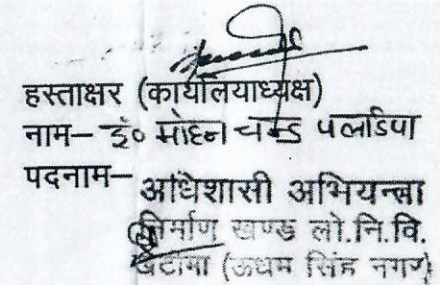 हस्ताक्षर (कार्यालयाध्यक्ष)
नाम– इं० मोहन चन्द्र पलड़िया
पदनाम– अधिशासी अभियन्ता
निर्माण खण्ड लो.नि.वि.
खटीमा (ऊधम सिंह नगर)